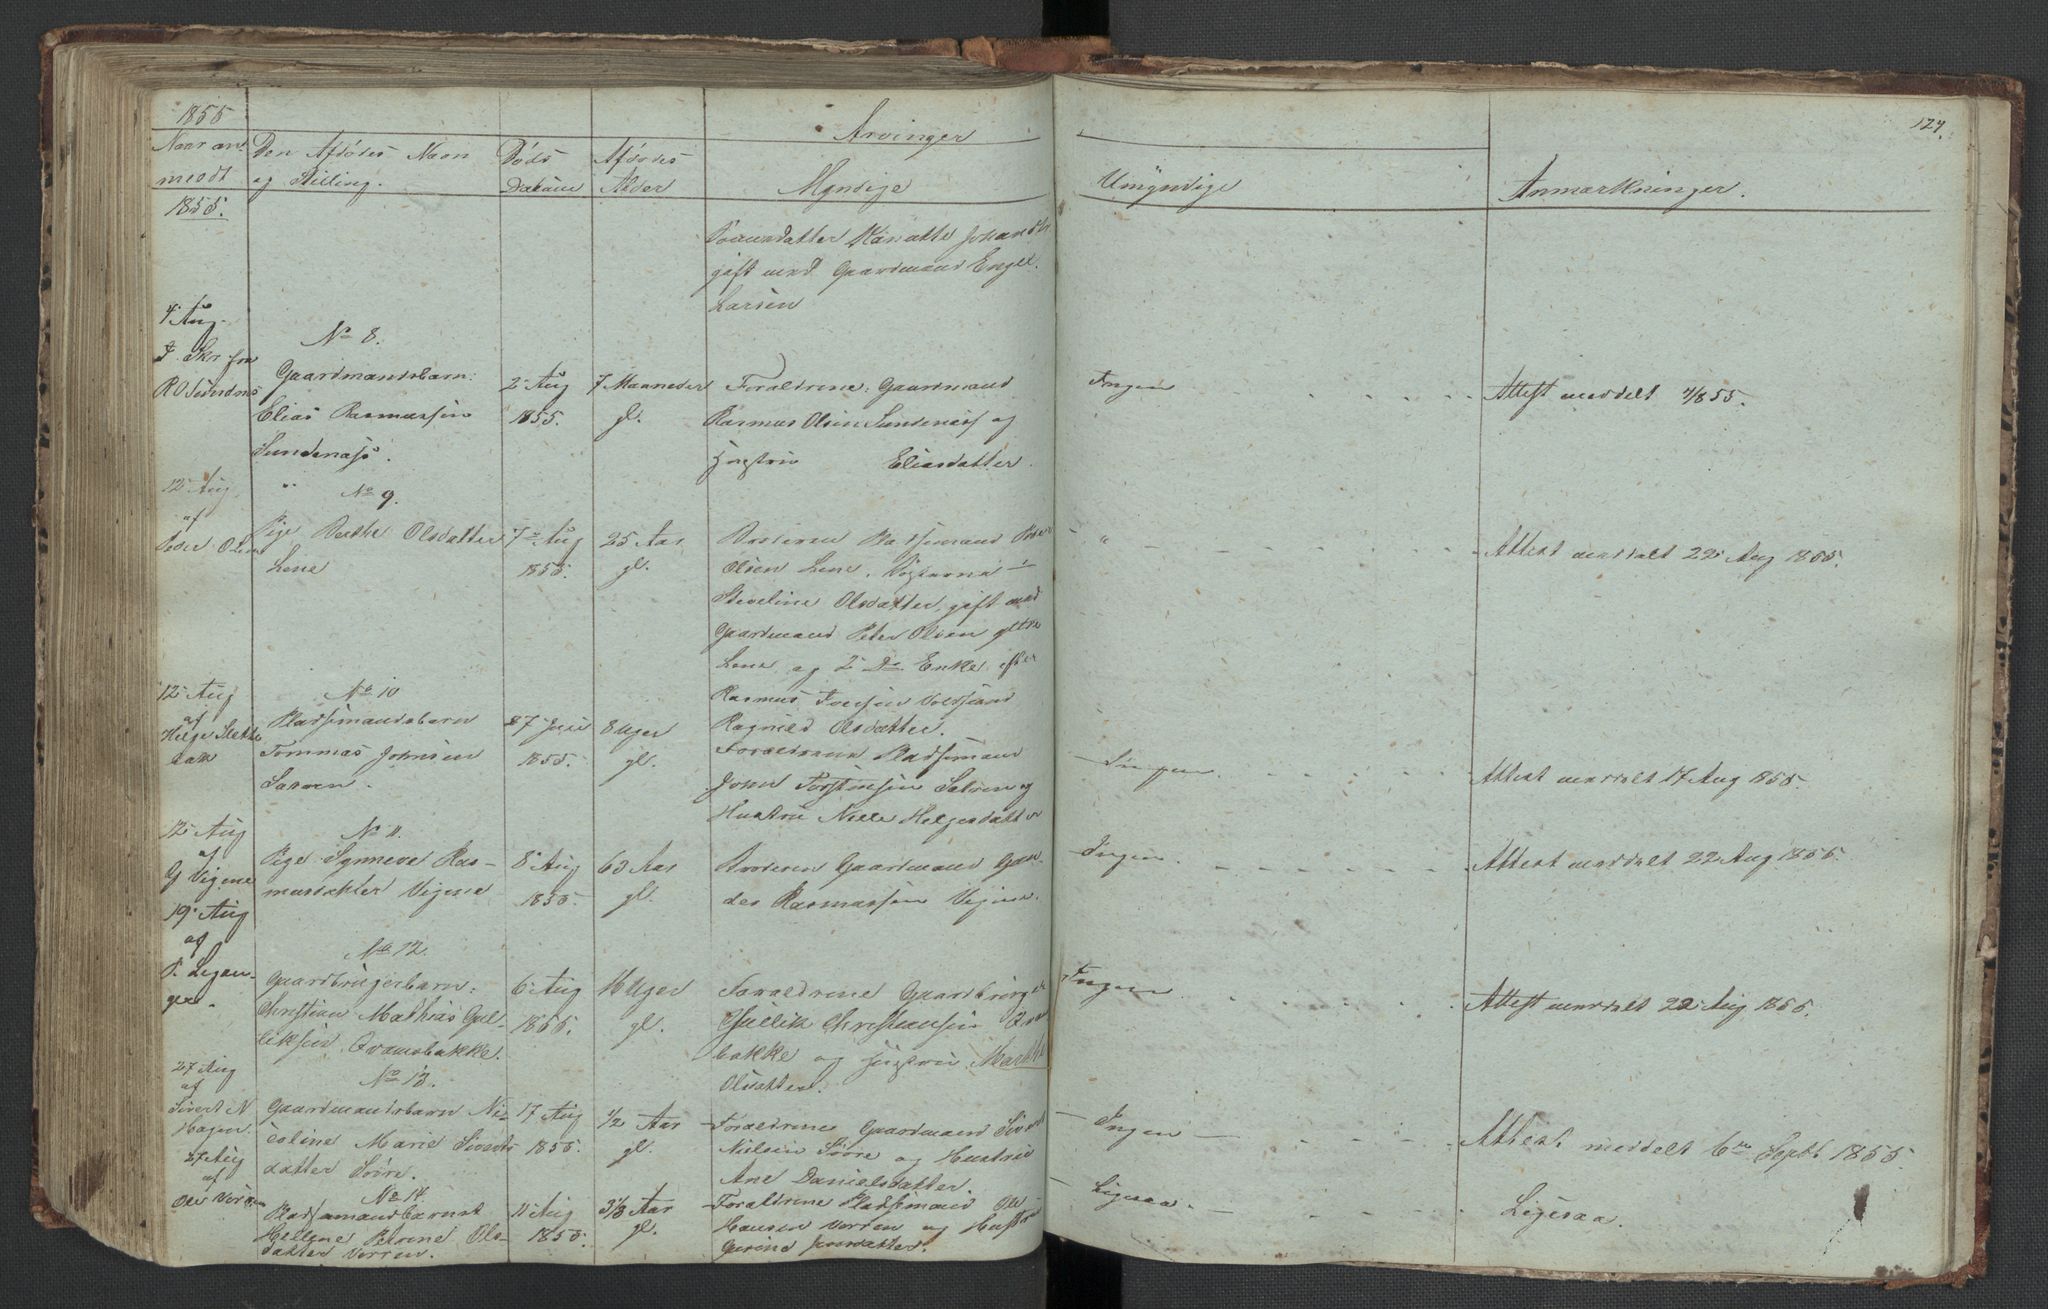 1855
Arvinger
124.
Naar an-
meldt
Den Afdödes Navn
og Stilling.
Döds
Datum
Afdödes
Alder
Myndige
Umyndige
Anmærkninger.
1855.
gift med Gaardmand Engel
Larsen
4 Aug.
No 8.
Gaardmandsbarn:
Elias Rasmussen
Sundenæs.
2 Aug
1855.
7 Maaneder
gl.
Forældrene: Gaardmand
Rasmus Olsen Sundenæs og
Hustru Eliasdatter.
Ingen
Attest meddelt 4/8 55.
12 Aug
af
Peder Olsen
No 9.
Pige Berthe Olsdatter
Lene
7de Aug
1855.
25 Aar
gl.
Broderen Pladsemand Peder
Olsen Lene, Sösterne
Steveline Olsdatter, gift med
Gaardmand Peter Olsen
Lene og 2 Do Enke efter
Rasmus Iversen
Ragnild Olsdatter.
"
Attest meddelt 22 Aug 1855.
12 Aug
af
Helge Slette
bak
No 10
Pladsemandsbarn
Tommas Johnsen
27 Juni
1855.
8 Uger
gl.
Forældrene Pladsemand
John Torstensen og
Hustru Nille Helgesdatter
Ingen
Attest meddelt 17 Aug 1855.
12 Aug
af
G Vigene
No 11.
Pige Synneve Ras-
musdatter Vigene
8 Aug
1855.
63 Aar
gl.
Broderen Gaardmand Gun-
der Rasmussen Vigene.
Ingen
Attest meddelt 22 Aug 1855.
19 Aug
af
P. Legan-
ger.
No 12.
Gaardbrugerbarn:
Christian Mathias Gul-
liksen Qvamsbakke.
6 Aug
1855.
11 Uger
gl.
Forældrene Gaardbruger
Gullik Christiansen Qvams
bakke og Hustru Marthe
Olsdatter.
Ingen
Attest meddelt 22 Aug 1855.
27 Aug
af
Sivert N
Hagen.
No 13.
Gaardmandsbarn Ni-
coline Marie Siverts
datter Sörre.
17 Aug
1855.
1/2 Aar
gl.
Forældrene Gaardmand Sivert
Nielsen Sörre og Hustru
Ane Danielsdatter.
Ingen
Attest meddelt 6te Septr 1855.
27 Aug
af
Ole Verren
No 14.
Pladsemandsbarnet
Hellene Petrine Ols-
datter Verren.
11 Aug
1855.
3 1/3 Aar
gl.
Forældrene Pladsemand Ole
Hansen Verren og Hustru
Gurine
Ligesaa.
Ligesaa.